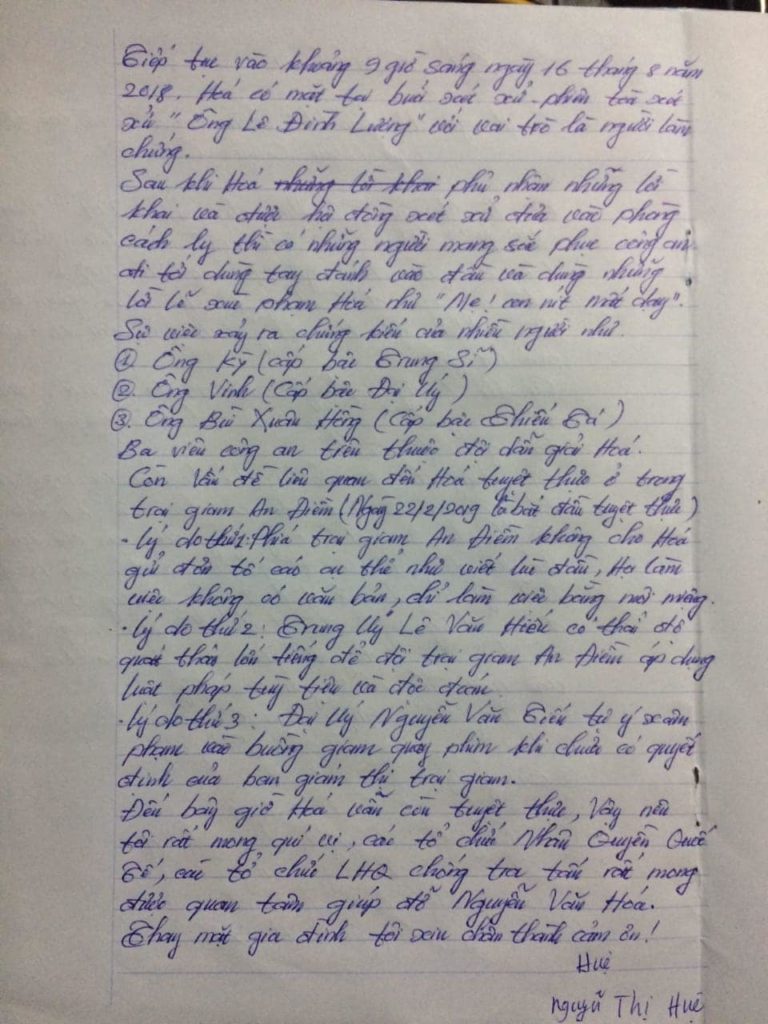 Tiếp tục vào khoảng 9 giờ sáng ngày 16 tháng 8 năm
2018. Hoá có mặt tại buổi xét xử phiên toà xét
xử "Ông Lê Đình Lượng" với vai trò là người làm
chứng.
Sau khi Hoá những lời khai phủ nhận những lời
khai và được hội đồng xét xử đưa vào phòng
cách ly thì có những người mang sắc phục công an
đi tới dùng tay đánh vào đầu và dùng những
lời lẽ xúc phạm Hoá như "Mẹ! con nít mất dạy".
Sự việc xảy ra chứng kiến của nhiều người như.
① Ông Kỳ (cấp bậc Trung Sĩ)
②. Ông Vinh (Cấp bậc Đại Uý)
③. Ông Bùi Xuân Hồng (Cấp bậc Thiếu Tá)
Ba viên công an trên thuộc đội dẫn giải Hoá.
Còn Vấn đề liên quan đến Hoá tuyệt thực ở trong
trại giam An Điềm (Ngày 22/2/2019 là bắt đầu tuyệt thực)
- Lý do thứ 1: Phía trại giam An Điềm không cho Hoá
gửi đơn tố cáo cụ thể như viết lúc đầu, Họ làm
việc không có văn bản, chỉ làm việc bằng nói miệng.
- Lý do thứ 2: Trung Uý Lê Văn Hiếu có thái độ
quát tháo lớn tiếng để đội trại giam An Điềm áp dụng
luật pháp tuỳ tiện và độc đoán
- Lý do thứ 3: Đại Uý Nguyễn Văn Tiến tự ý xâm
phạm vào buồng giam quay phim khi chưa có quyết
định của ban giám thị trại giam.
Đến bây giờ Hoá vẫn còn tuyệt thực, Vậy nên
tôi rất mong quí vị, các tổ chức Nhân Quyền Quốc
Tế, các tổ chức LHQ chống tra tấn rất mong
được quan tâm giúp đỡ Nguyễn Văn Hoá.
Thay mặt gia đình tôi xin chân thành cảm ơn!
Huệ
Nguyễn Thị Huệ